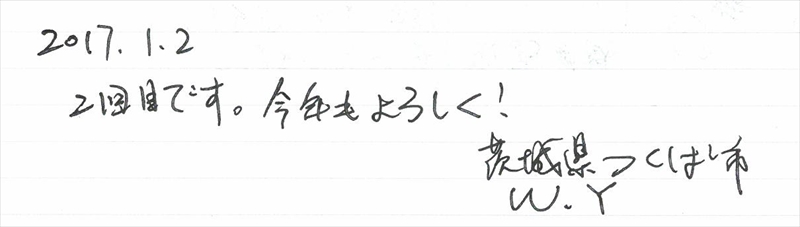 2017.1.2
2回目です。今年もよろしく!
茨城県つくば市
W.Y